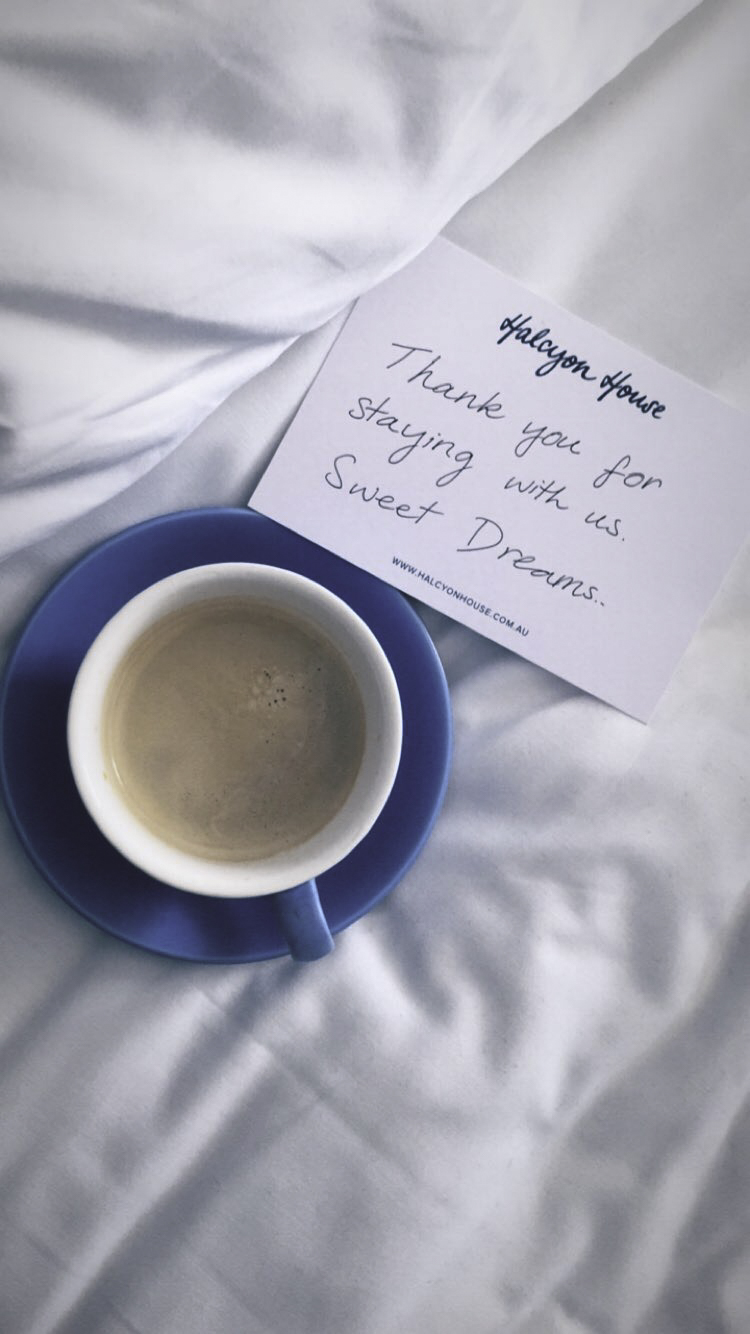 Halcyon House
Thank you for
staying with us.
Sweet Dreams..
WWW.HALCYONHOUSE.COM.AU